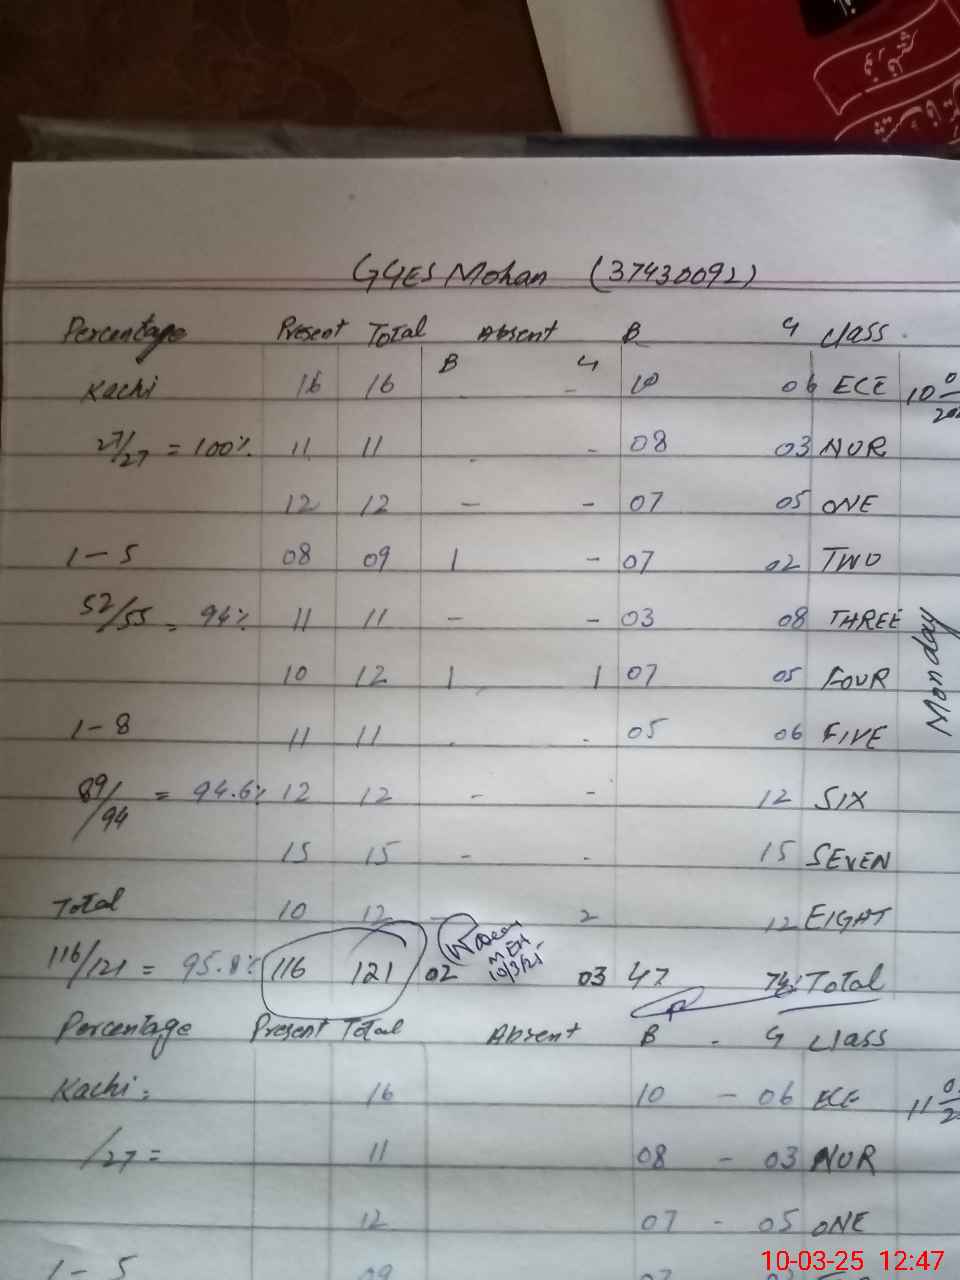 GGES Mohan (37430092)
Percentage Present Total Absent B G Class
B G
Kachi 16 16 - - 10 06 ECE 10
27/27 = 100% 11 11 - - 08 03 NUR
12 12 - - 07 05 ONE
1-5 08 09 1 - 07 02 TWO
52/55 = 94% 11 11 - - 03 08 THREE
10 12 1 1 07 05 FOUR
Monday
1-8 11 11 - - 05 06 FIVE
89/94 = 94.6% 12 12 - - 12 SIX
15 15 - - 15 SEVEN
Total 10 12 - 2 12 EIGHT
116/121 = 95.8% 116 121 02 03 47 74 Total
MEA
10/3/25
Percentage Present Total Absent B - G Class
Kachi = 16 10 - 06 ECE 11
/27 = 11 08 - 03 NUR
12 07 - 05 ONE
1-5 09
10-03-25 12:47